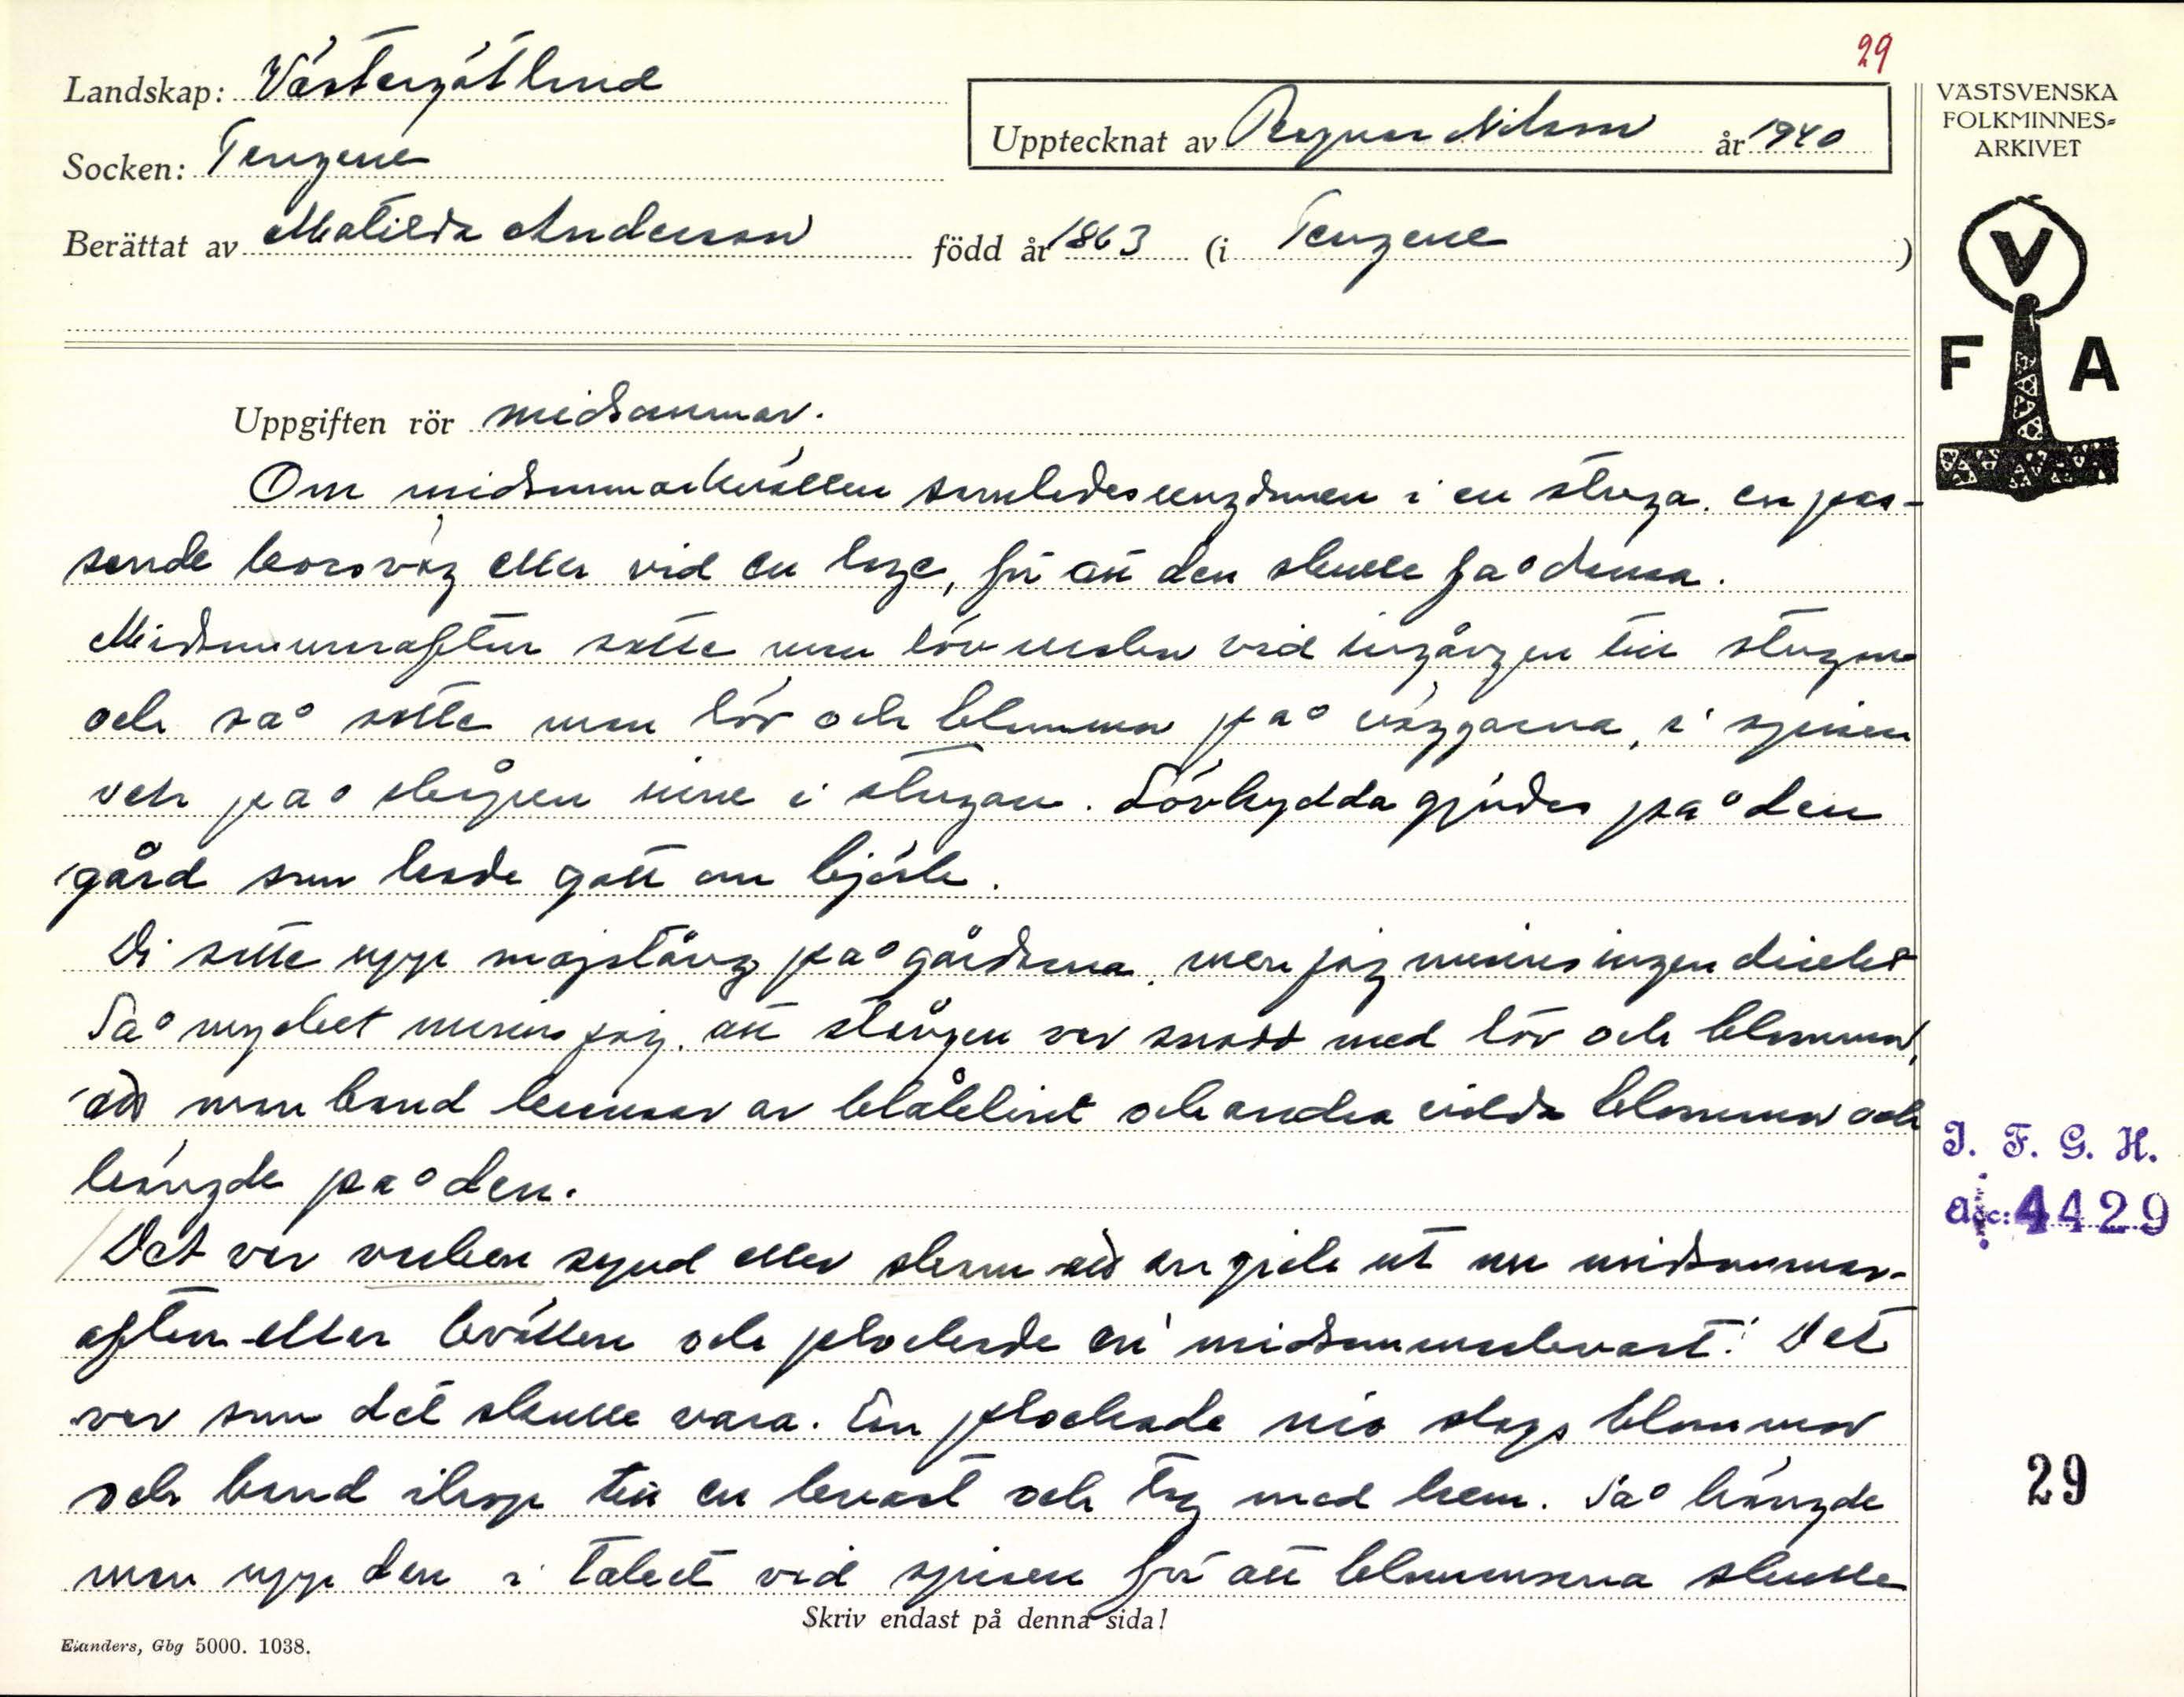 29
Landskap: Västergötland
Socken: Tengene
Upptecknat av Ragnar Nilsson år 1940
Berättat av Matilda Andersson född år 1863 (i Tengene )
VÄSTSVENSKA
FOLKMINNES-
ARKIVET
V
F A
Uppgiften rör midsommar.
Om midsommarkvällen samlades ungdomen i en stuga, en pas-
sande korsväg eller vid en loge, för att den skulle få dansa.
Midsommarafton satte man lövruskor vid ingången till stugan
och så satte man löv och blommor på väggarna, i spisen
och på stången inne i stugan. Lövhydda gjordes på den
gård som hade gott om björk.
Di satte upp majstång på gårdarna, men jag minns ingen direkt
Så mycket minns jag, att stången var snodd med löv och blommor,
att man band kransar av blåklint och andra vilda blommor och
hängde på den.
Det var varken synd eller skam att en gick ut om midsommar-
afton eller kvällen och plockade en midsommarkvast. Det
var som det skulle vara. En plockade nio slags blommor
och band ihop till en kvast och tog med hem. Så hängde
man upp den i taket vid spisen för att blommorna skulle
Skriv endast på denna sida!
Elanders, Gbg 5000. 1038.
I. F. G. H.
Acc: 4429
29